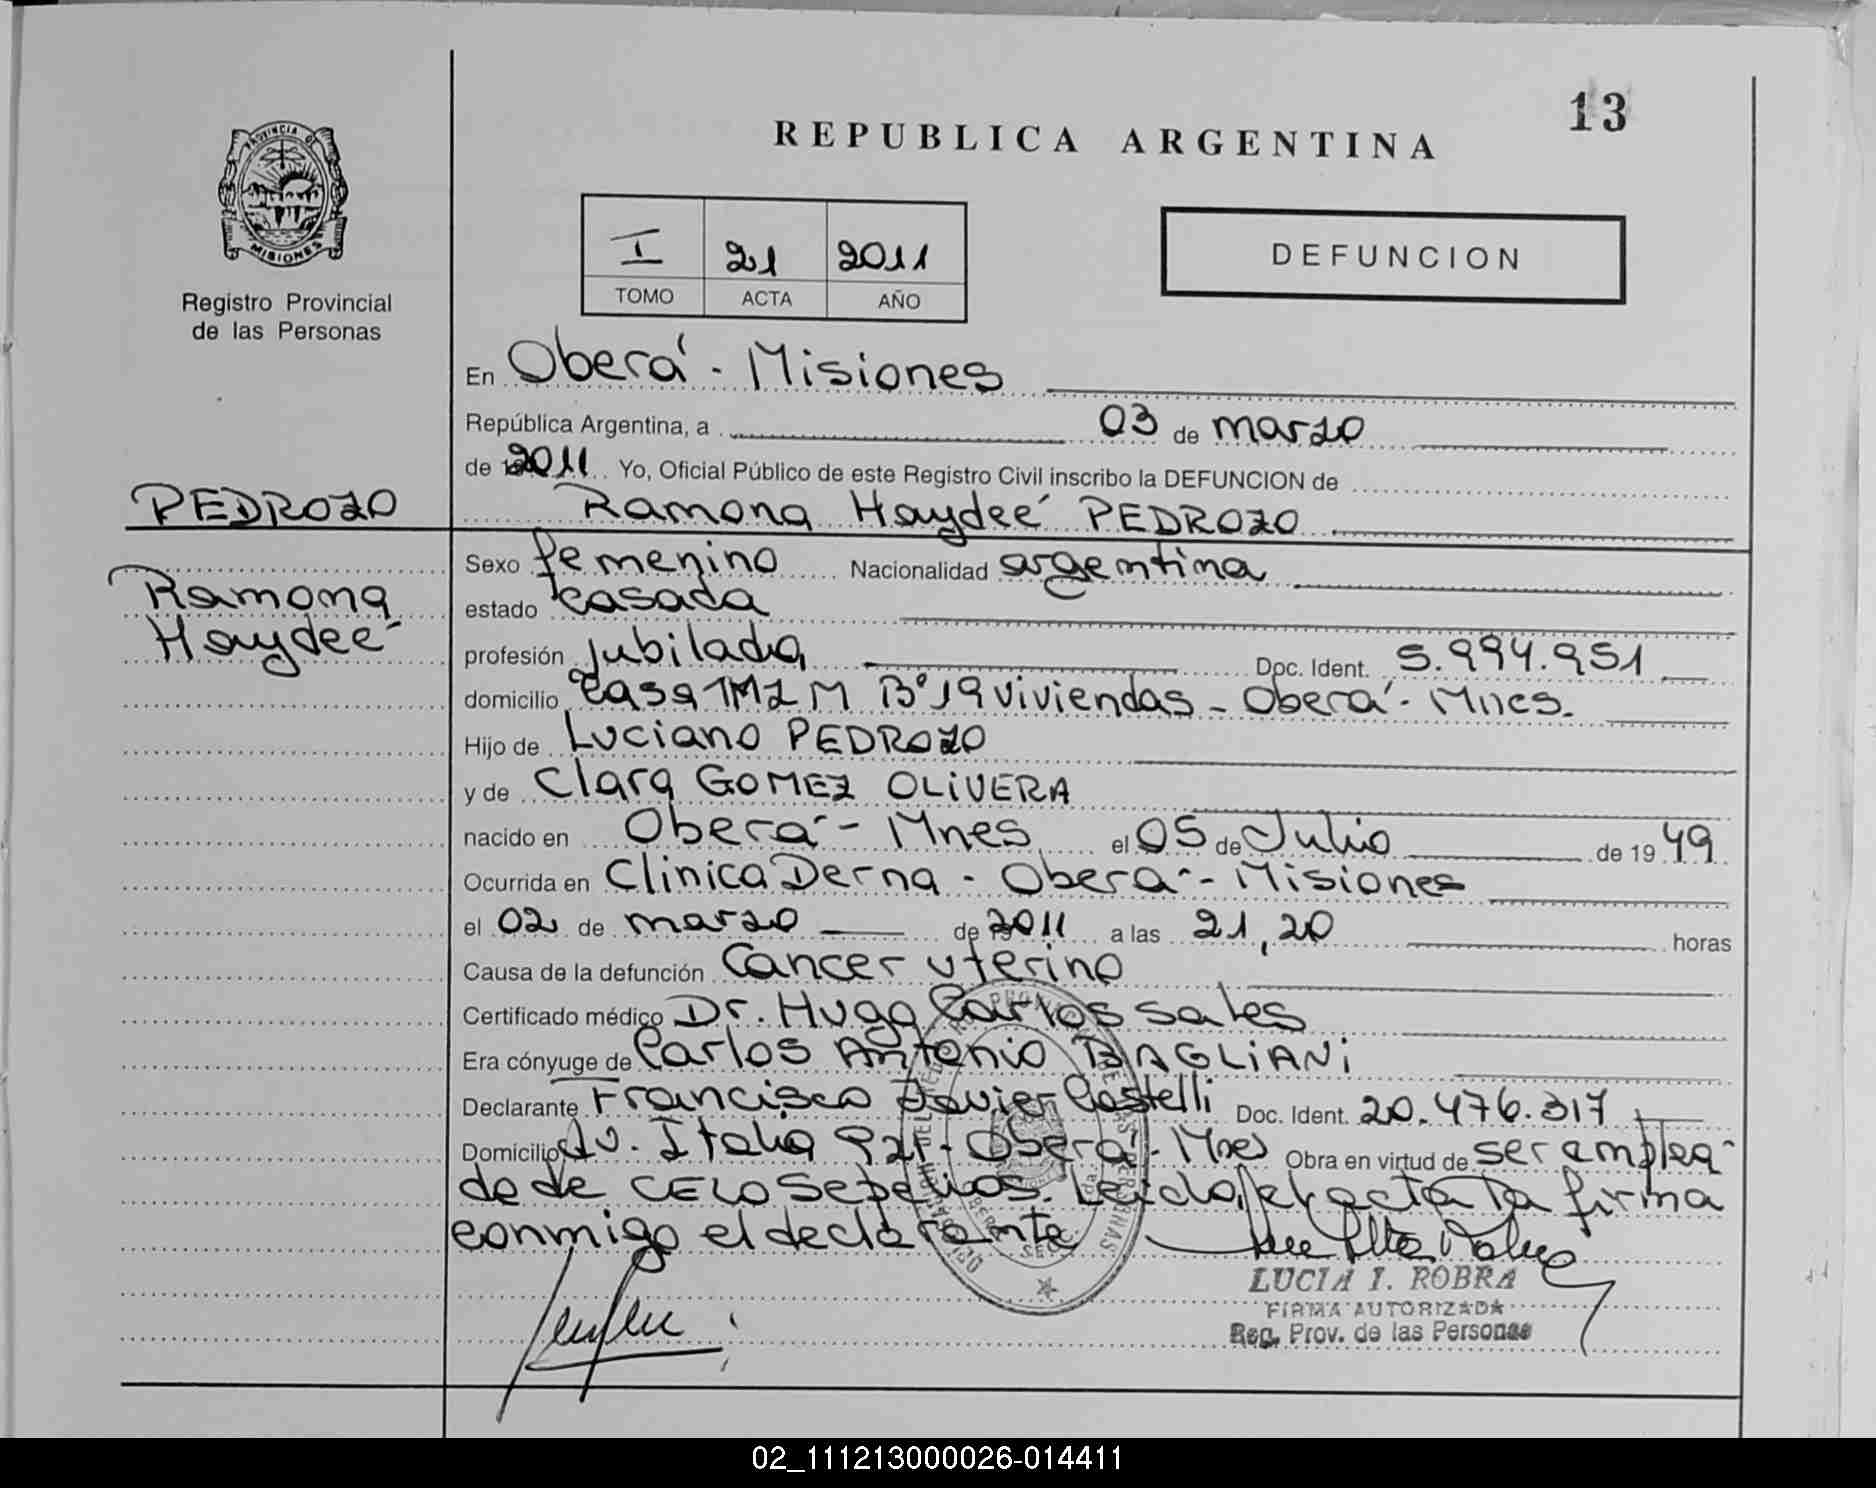 13
REPUBLICA ARGENTINA
PROVINCIA DE
MISIONES
Registro Provincial
de las Personas
I 21 2011
TOMO ACTA AÑO
DEFUNCION
En Oberá - Misiones
República Argentina, a 03 de marzo
de 2011 Yo, Oficial Público de este Registro Civil inscribo la DEFUNCION de
PEDROZO
Ramona Haydeé PEDROZO
Ramona
Haydeé
Sexo femenino Nacionalidad argentina
estado casada
profesión jubilada Doc. Ident. 5.994.951
domicilio casa M Bº 19 viviendas - Oberá - Mnes.
Hijo de Luciano PEDROZO
y de Clara GOMEZ OLIVERA
nacido en Oberá - Mnes el 05 de Julio de 1949
Ocurrida en Clinica Derna - Oberá - Misiones
el 02 de marzo de 2011 a las 21,20 horas
Causa de la defunción Cancer uterino
Certificado médico Dr. Hugo Carlos Sales
Era cónyuge de Carlos Antonio BAGLIANI
Declarante Francisco Javier Castelli Doc. Ident. 20.476.317
Domicilio Av. Italia - Oberá - Mnes Obra en virtud de ser emplea-
do de CELO Sepelios. Leída el acta la firma
conmigo el declarante
LUCIA I. ROBRA
FIRMA AUTORIZADA
Reg. Prov. de las Personas
02_111213000026-014411